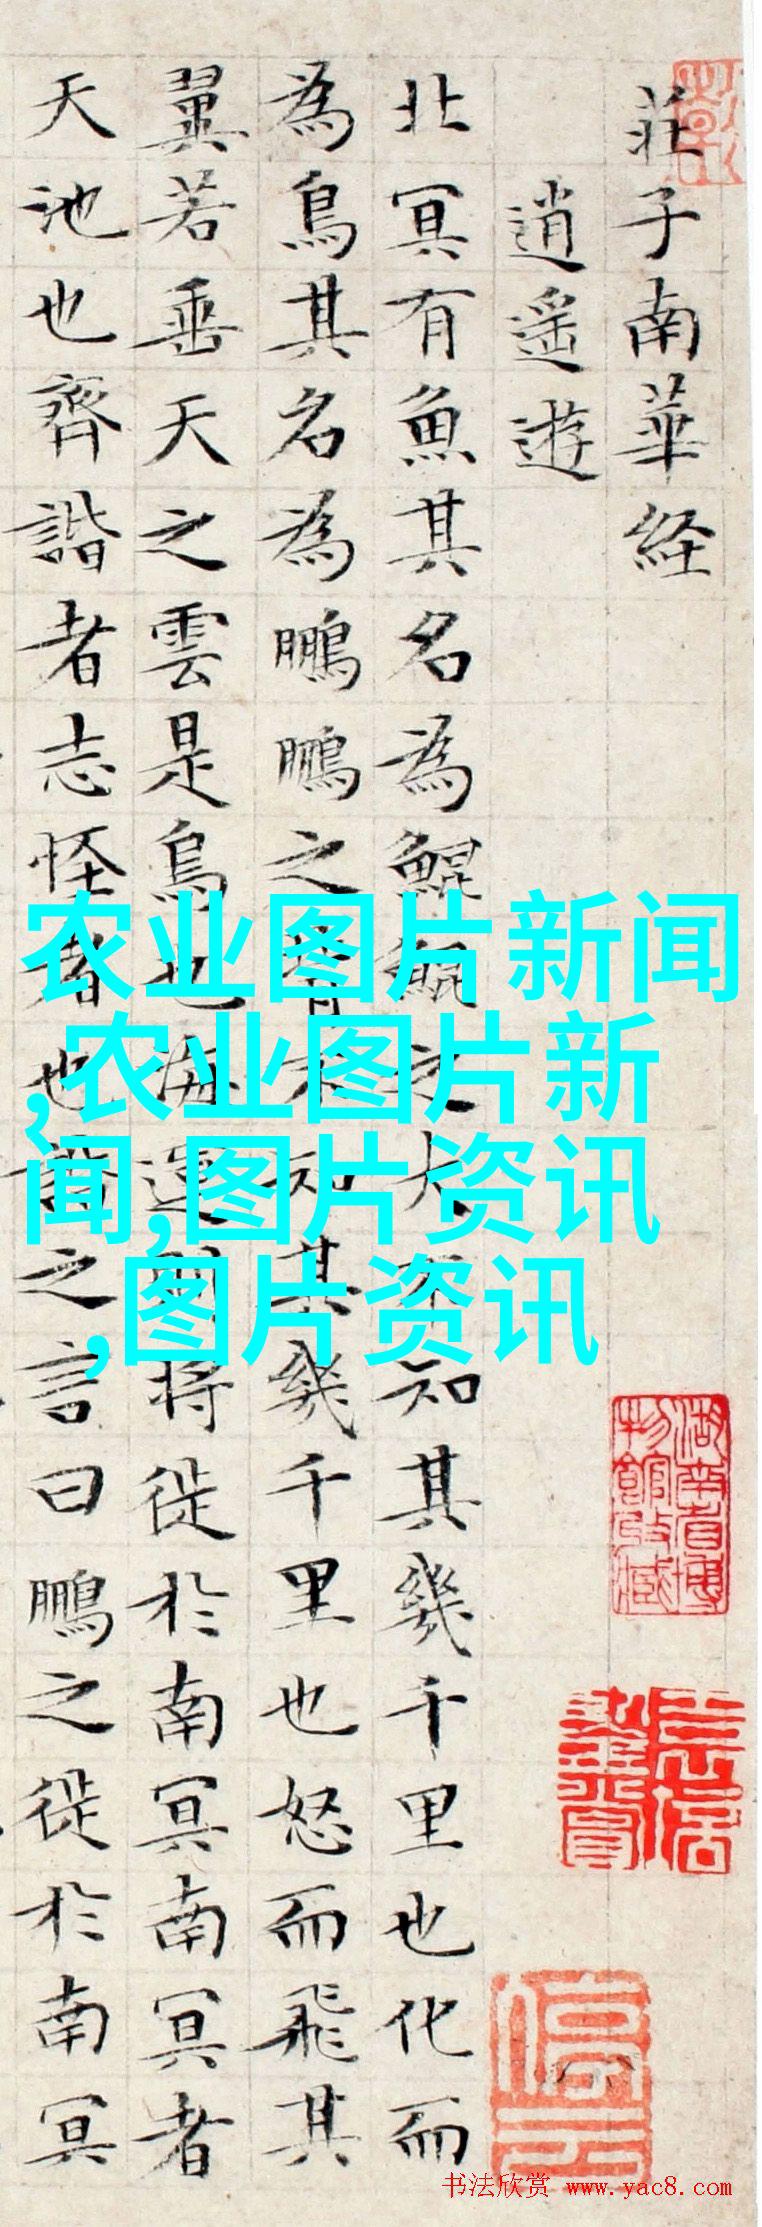 莊子南華経
逍遥遊
北冥有魚其名為鯤鯤之大不知其幾千里也化而
為鳥其名為鵬鵬之背不知其幾千里也怒而飛其
翼若垂天之雲是鳥也海運則將徙於南冥南冥者
天池也齊諧者志怪者也諧之言曰鵬之徙於南冥
农业图片新闻
,农业图片新
闻,图片资讯
,图片资讯
湖南省博
物館收藏
停云
书法欣赏 www.yac8.com